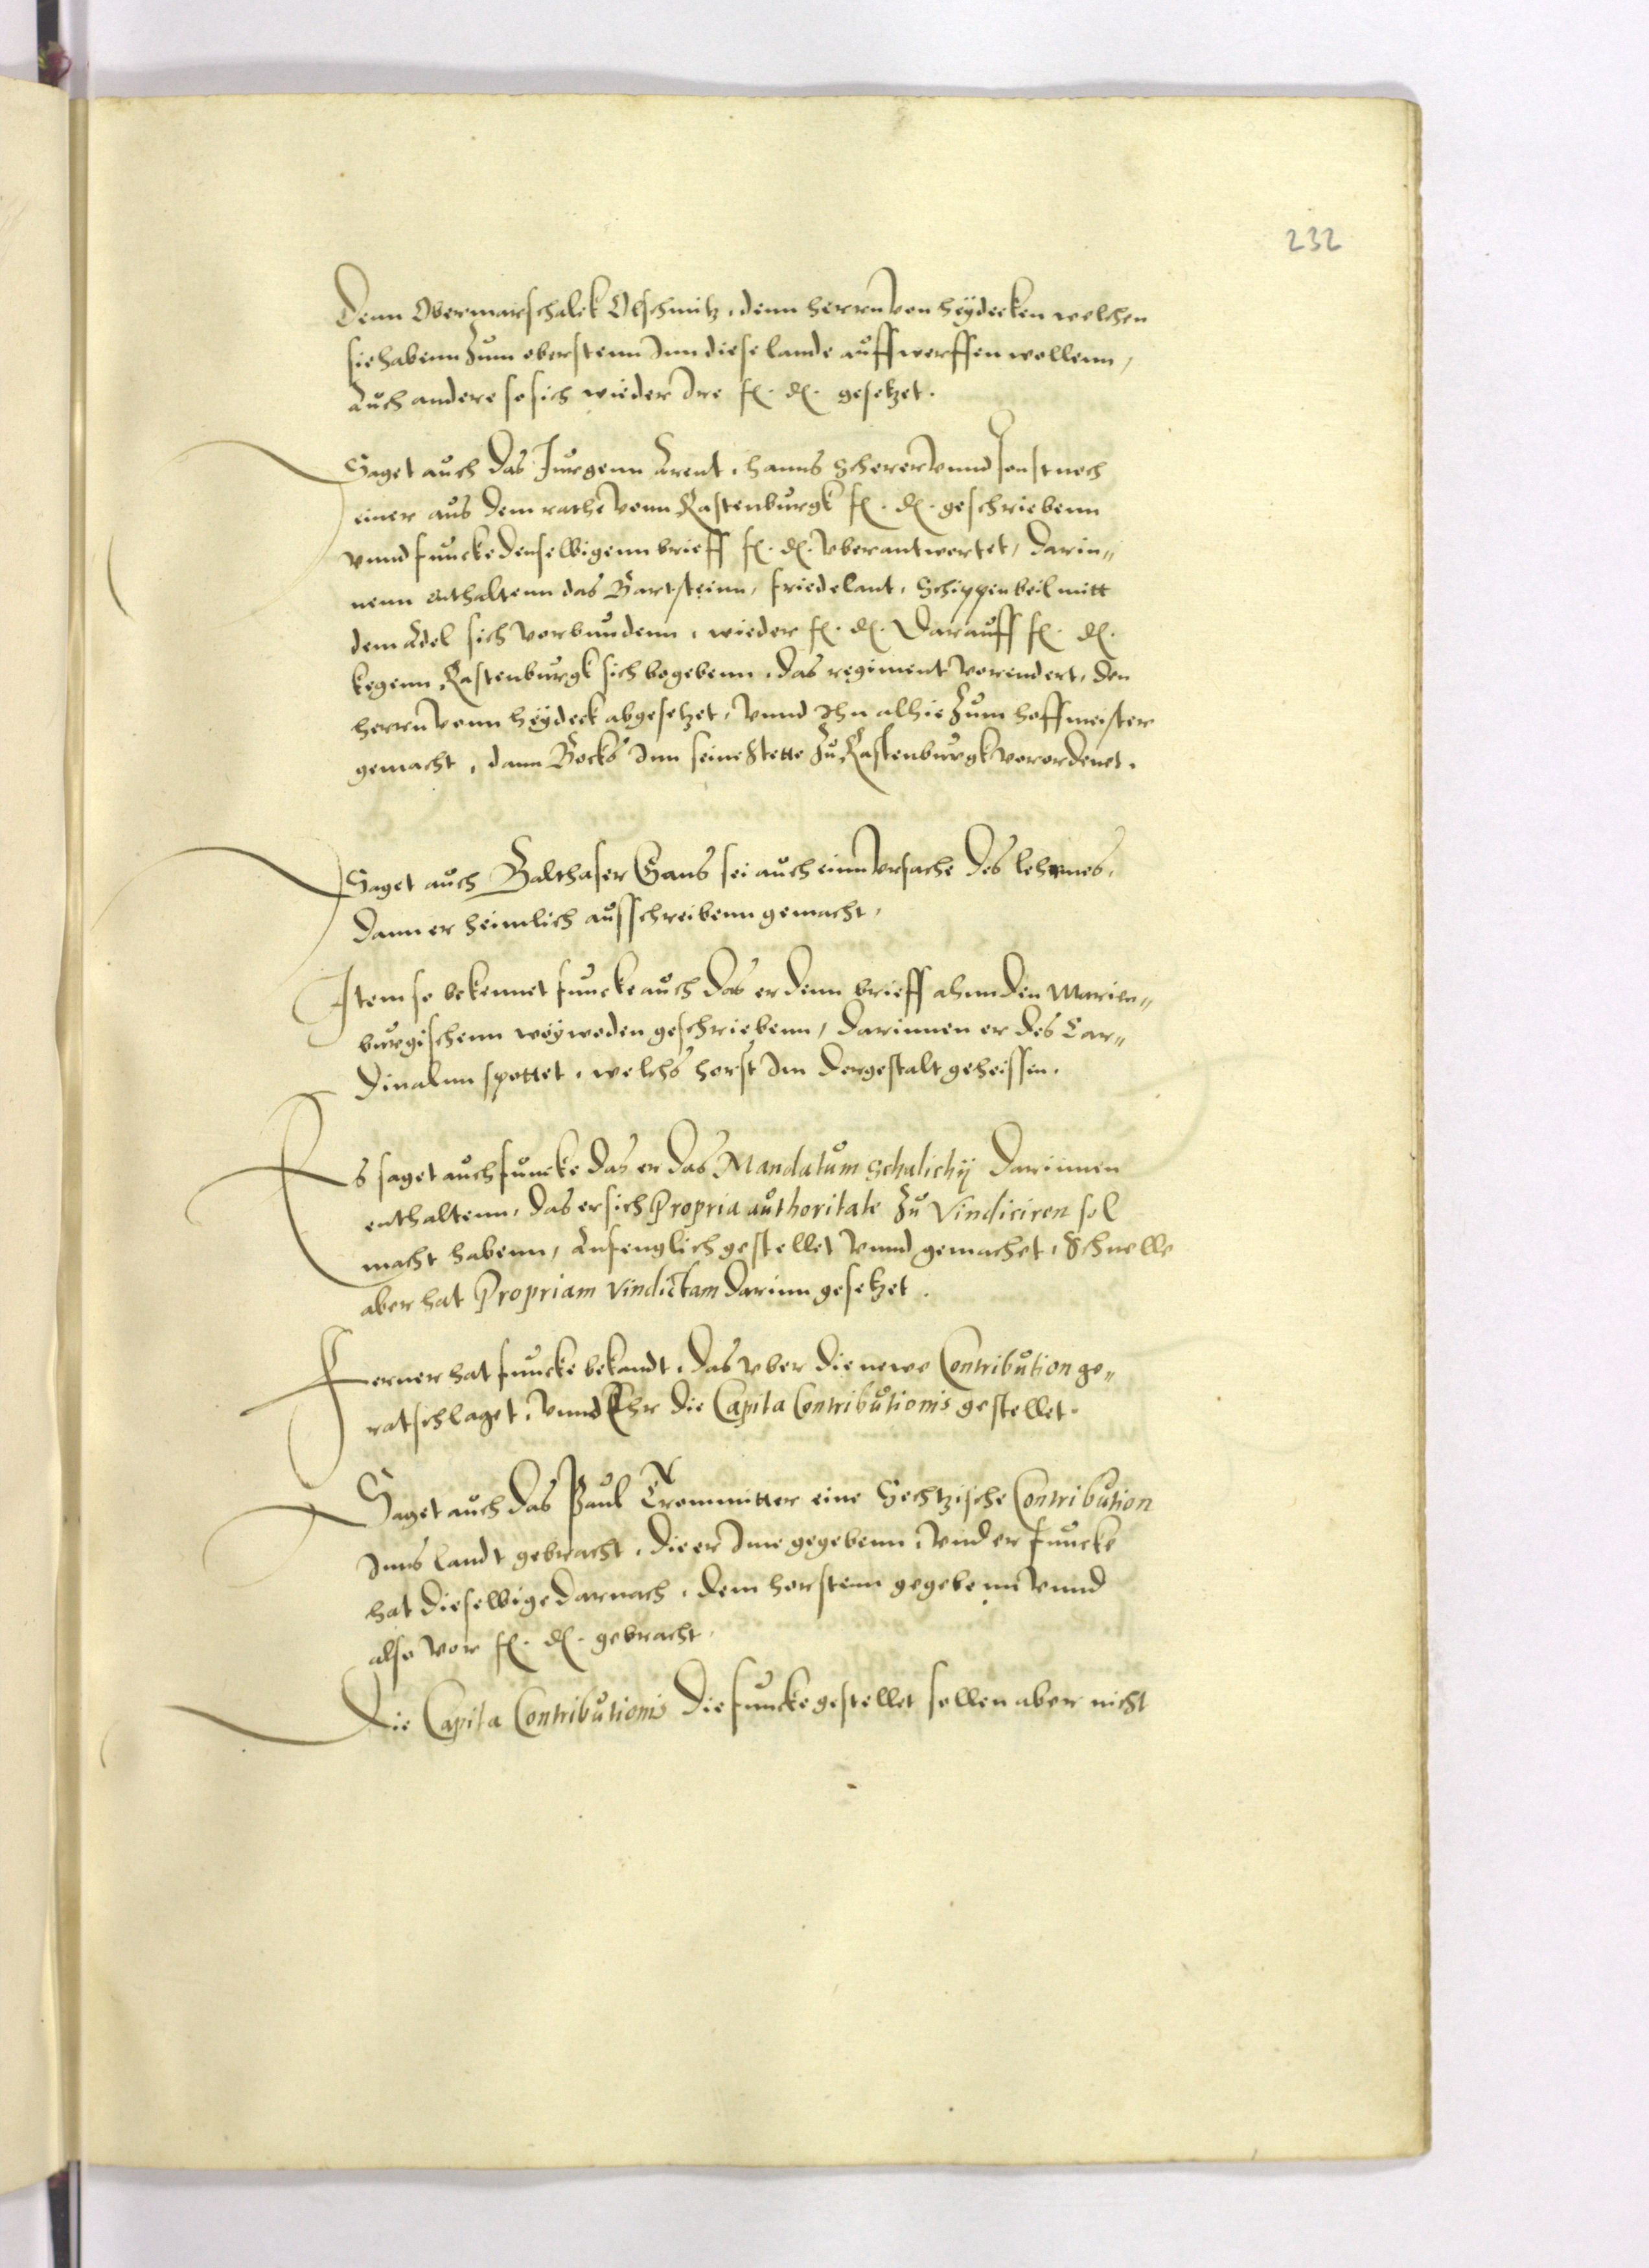 232
Denn Obermarschalck Olschnitz, denn herrn von heydecken welchen
sie habenn Zum oberstenn Inn diese lande auffwerffen wollenn,
Auch andere so sich wieder Ire f. d. gesetzet.
Saget auch das Jurgenn Arent, hanns Scherer vnnd sonst noch
einer aus dem rathe vonn Rastenburgk f. d. geschriebenn
vnnd funcke denselbigenn brieff f. d. vberantwortet, darin„
nenn enthaltenn das Bartsteinn, friedelant, Schippenbeil mitt
dem Adel sich vorbundenn, wieder f. d. Darauff f. d.
kegenn Rastenburgk sich begebenn, das regiment vorendert, den
herrn vonn heydeck abgesetzet, vnnd Ihn alhie Zum hoffmeister
gemacht, dann Bocks Inn seine Stette Zu Rastenburgk vorordenet.
Saget auch Balthaser Gans sei auch einn vrsache des lehrmes,
dann er heimlich ausschreibenn gemacht,
Item so bekennet funcke auch das er denn brieff ahnn den Marien„
burgischenn weywoden geschriebenn, darinnen er des Car„
dinaln spottet, welchs horst Im dergestalt geheissen.
Es saget auch funcke das er das Mandatum Schalichij darinnen
enthaltenn, das er sich Propria authoritate Zu Vindiciren sol
macht habenn, Anfenglich gestellet vnnd gemachet, Schnelle
aber hat Propriam vindictam darinn gesetzet.
Ferner hat funcke bekandt, das vber die newe Contribution ge„
ratschlaget, vnnd Ehr die Capita Contributionis gestellet.
Saget auch das Paul Crommitter eine Sechtzische Contribution
Inns landt gebracht, die er Ime gegebenn, vnd er funcke
hat dieselbige darnach, dem horstenn gegebenn vnnd
also vor f. d. gebracht.
Die Capita Contributionis die funcke gestellet sollen aber nicht